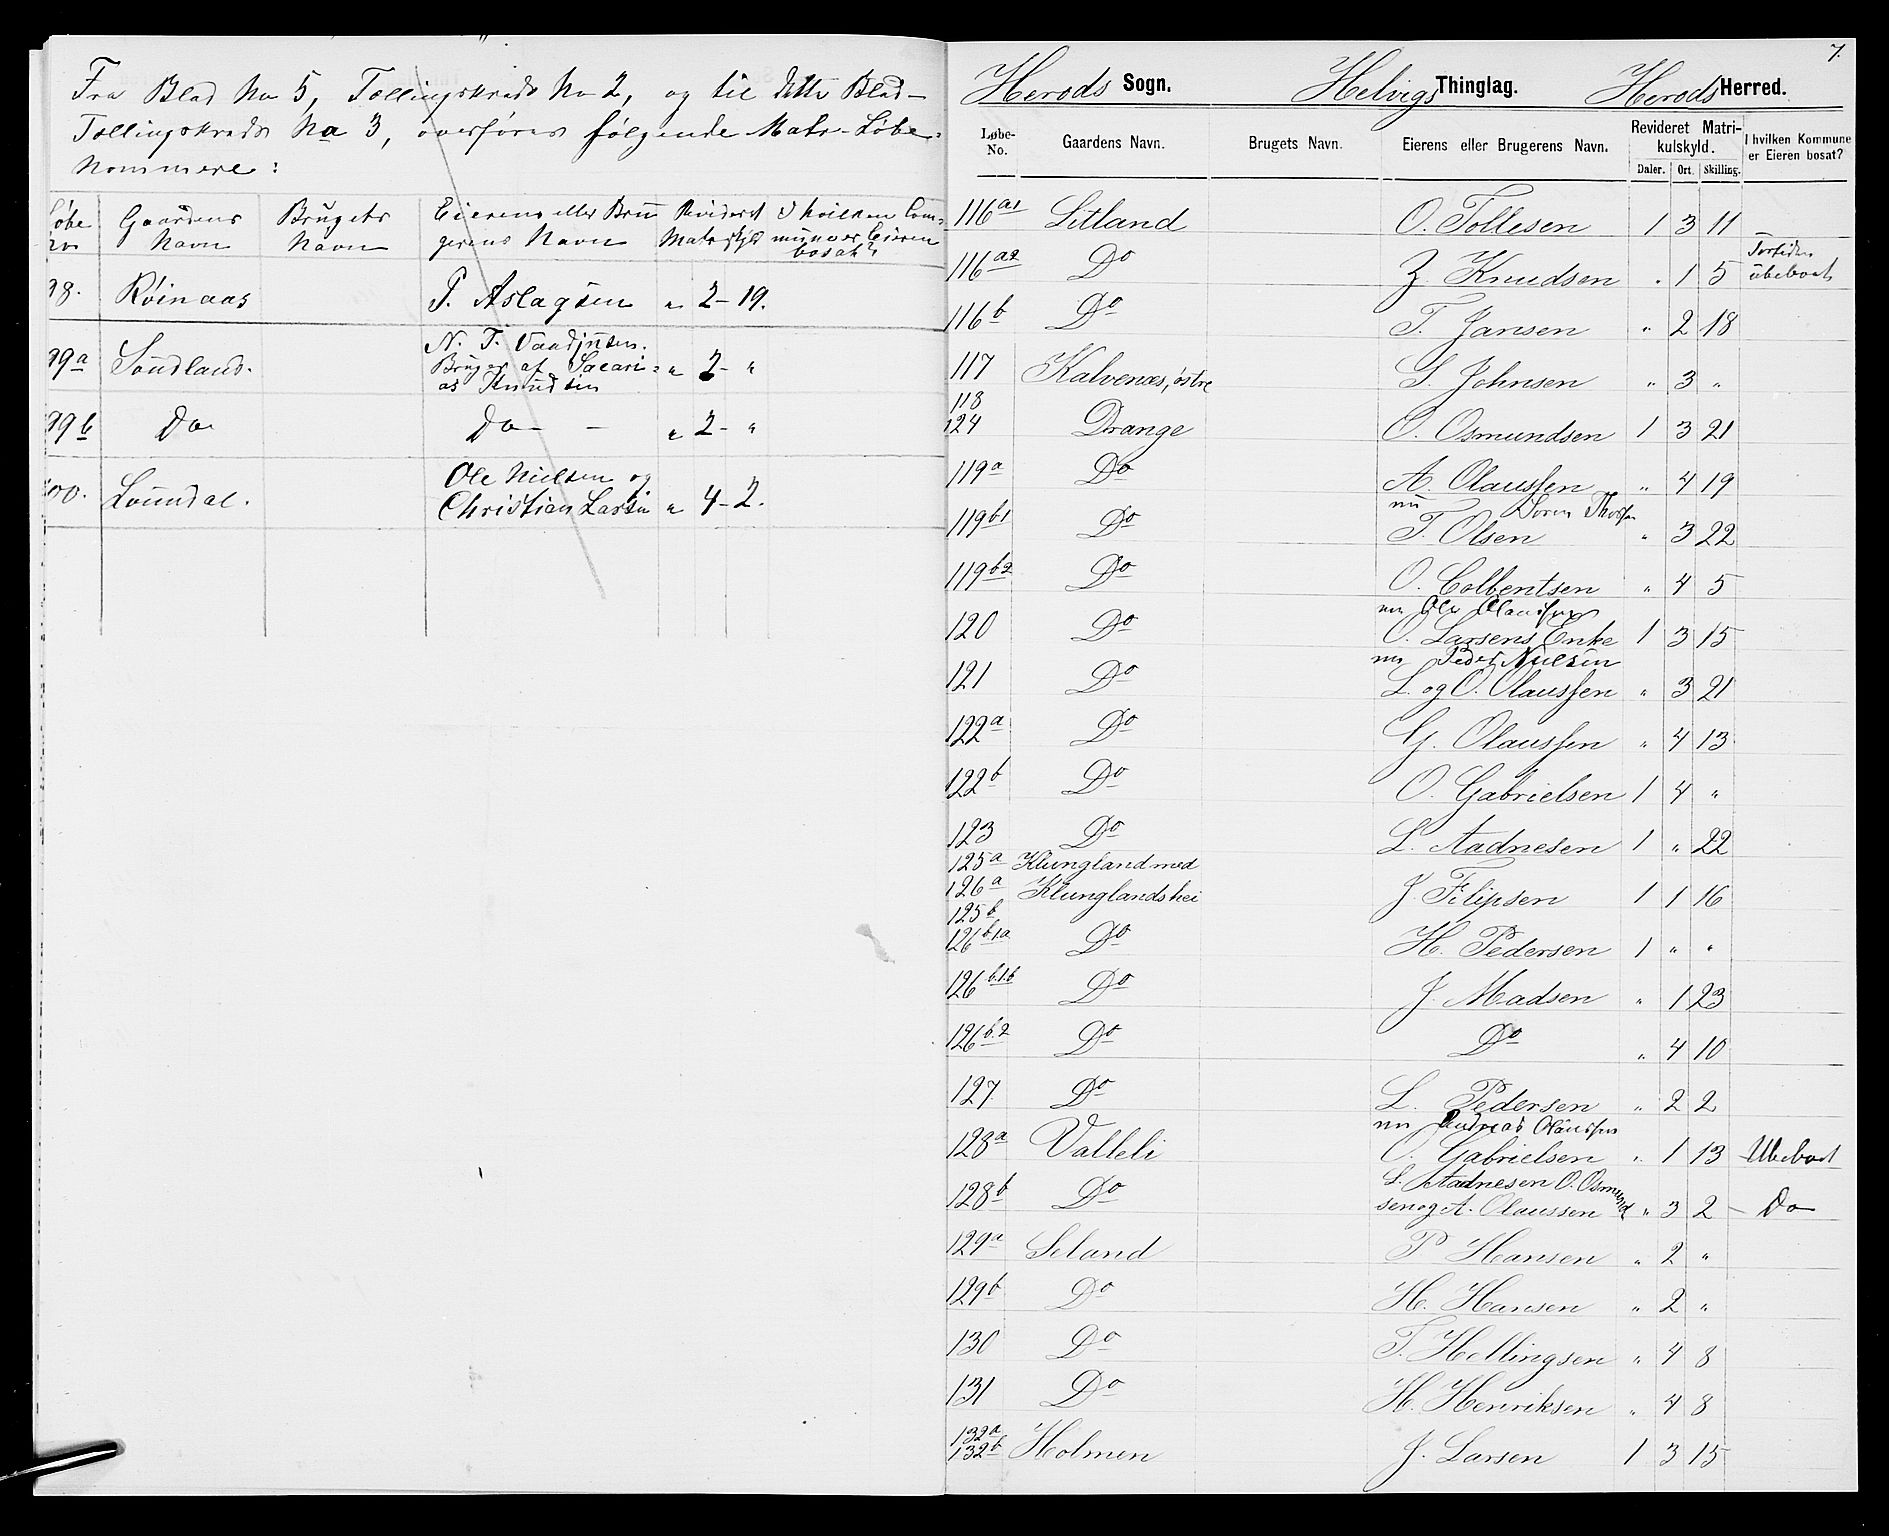 Fra Blad No 5, Tællingskreds No 2, og til dette Blad-
Tællingskreds No 3, overføres følgende Matr-Løbe-
Nommere:
Løbe No Gaardens Navn Brugets Navn Eierens eller Brugerens Navn Revideret Matr skyld I hvilken Commune er Eieren bosat?
98. Röinaas P. Aslagsen " 2-19.
99a Sundland. N. T. Vaadjusen. Bruger af Sacarias Knudsen " 2- "
99b Do Do - - " 2- "
100. Loundal. Ole Nielsen og Christian Larsen " 4-2.
7.
Herods Sogn. Helvigs Thinglag. Herods Herred.
Løbe-No. Gaardens Navn. Brugets Navn. Eierens eller Brugerens Navn. Revideret Matrikulskyld. I hvilken Kommune er Eieren bosat?
Daler. Ort. Skilling.
116a1 Litland O. Tollesen 1 3 11
116a2 Do Z. Knudsen " 1 5 ubeboet
116b Do T. Jansen " 2 18
117 Kalvenæs, östre S. Johnsen " 3 "
118
124 Drange O. Osmundsen 1 3 21
119a Do A. Olaussen " 4 19
119b1 Do nu Sören Thorsen
T. Olsen " 3 22
119b2 Do O. Colbentsen " 4 5
120 Do nu Ole Olaussen
O. Larsens Enke 1 3 15
121 Do nu Peder Nielsen
L. og O. Olaussen " 3 21
122a Do G. Olaussen " 4 13
122b Do O. Gabrielsen 1 4 "
123 Do L. Aadnesen 1 " 22
125a Klungland med
126a Klunglandshei J. Filipsen 1 1 16
125b
126b1a Do H. Pedersen 1 " "
126b.1.b Do J. Madsen " 1 23
126b.2 Do Do " 4 10
127. Do L. Pedersen " 2 2
128a Valleli nu Andreas Olaussen
O. Gabrielsen " 1 13 Ubeboet
128b Do L. Aadnesen O. Osmund
sen og A. Olaussen " 3 2 - Do
129a Seland P Hansen " 2 "
129b Do H. Hansen " 2 "
130 Do T. Hellingsen " 4 8
131 Do H. Henriksen " 4 8
132a
132b Holmen J. Larsen 1 3 15